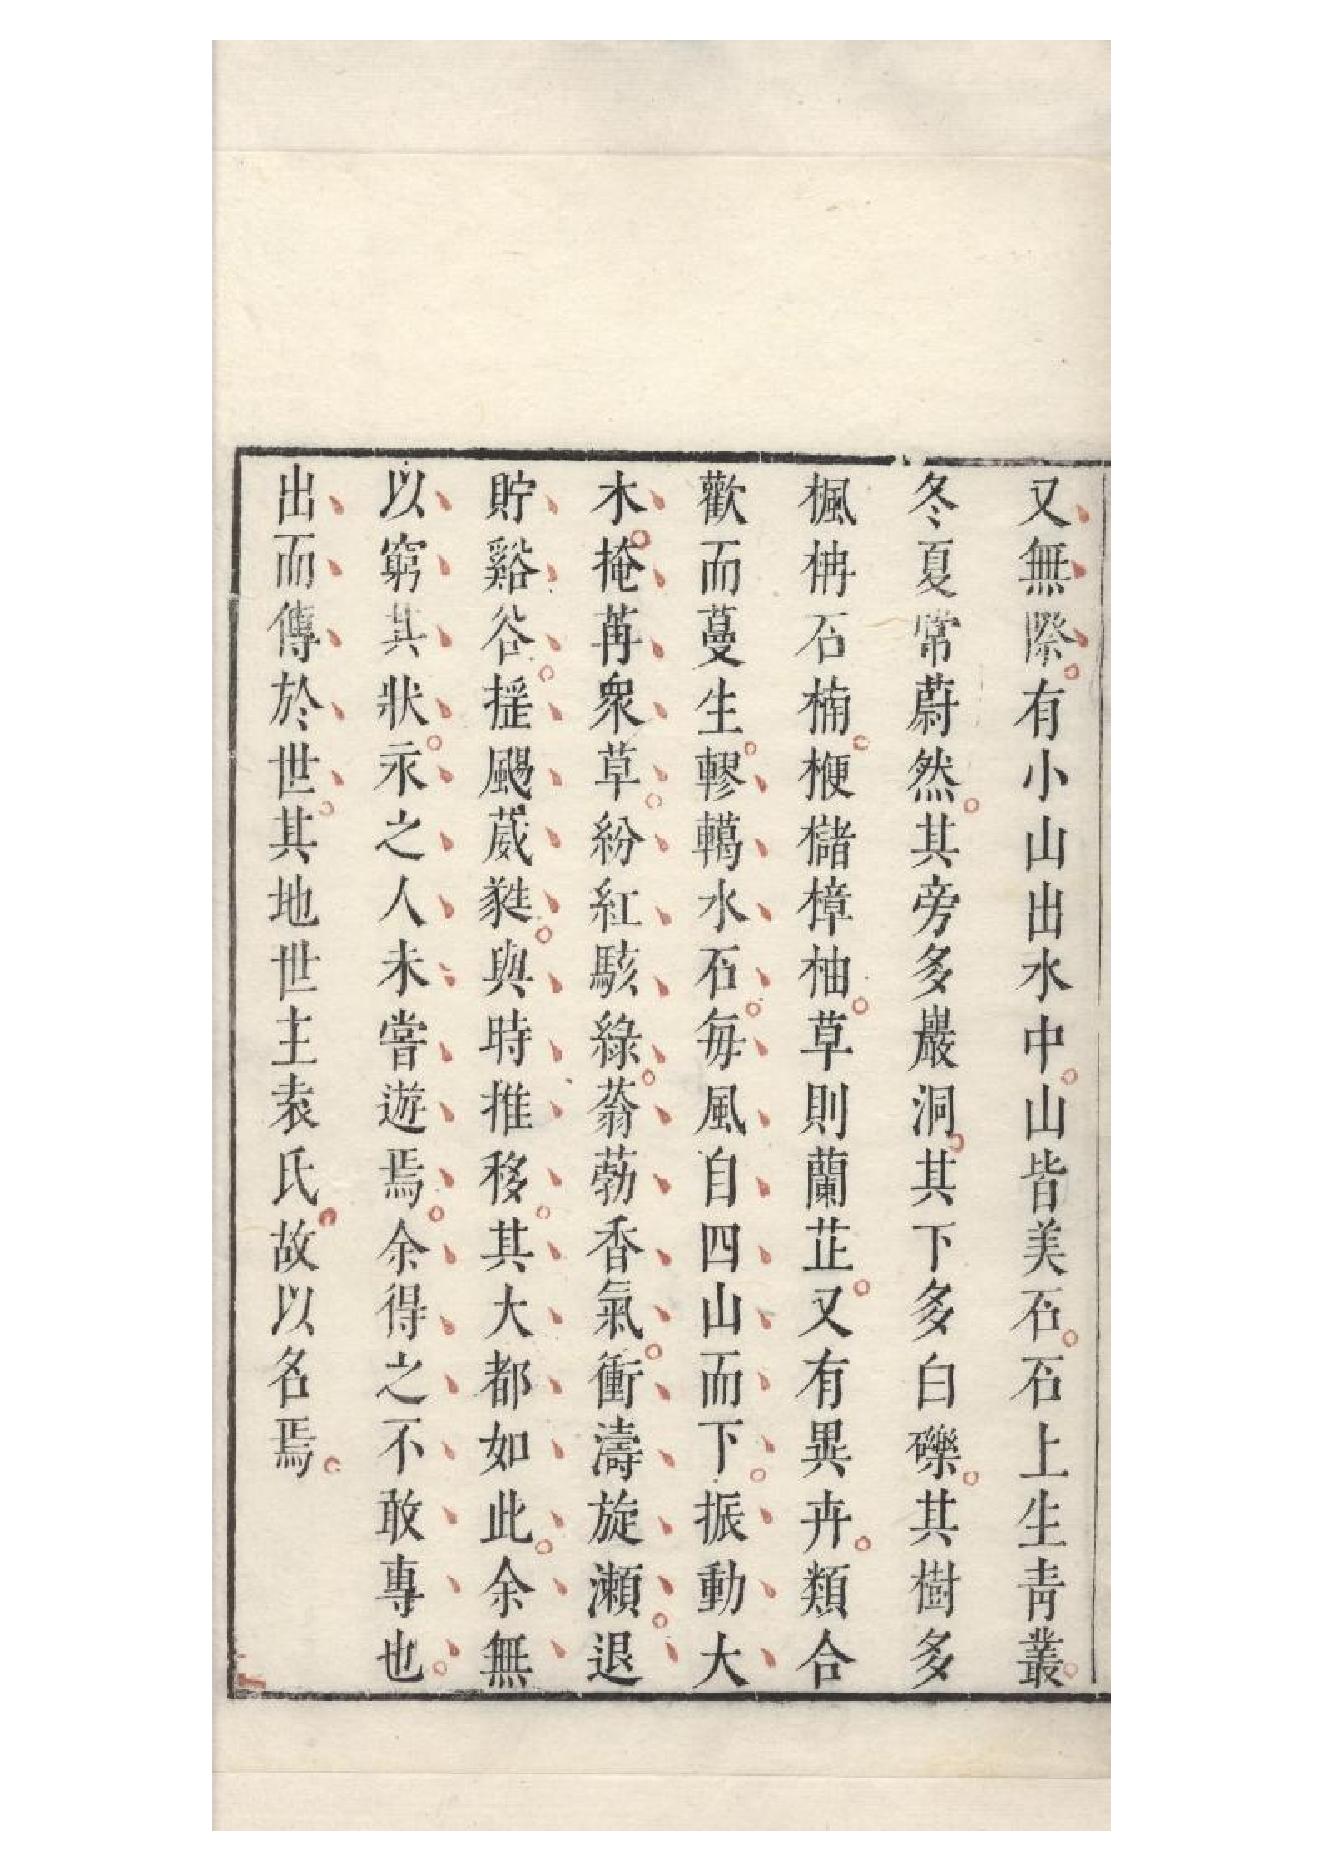 又無際有小山出水中山皆美石石上生青叢
冬夏常蔚然其旁多巖洞其下多白礫其樹多
楓枏石楠楩櫧樟柚草則蘭芷又有異卉類合
歡而蔓生轇轕水石每風自四山而下振動大
木掩苒衆草紛紅駭綠蓊葧香氣衝濤旋瀨退
貯谿谷搖颺葳蕤與時推移其大都如此余無
以窮其狀永之人未嘗遊焉余得之不敢專也
出而傳於世其地世主袁氏故以名焉